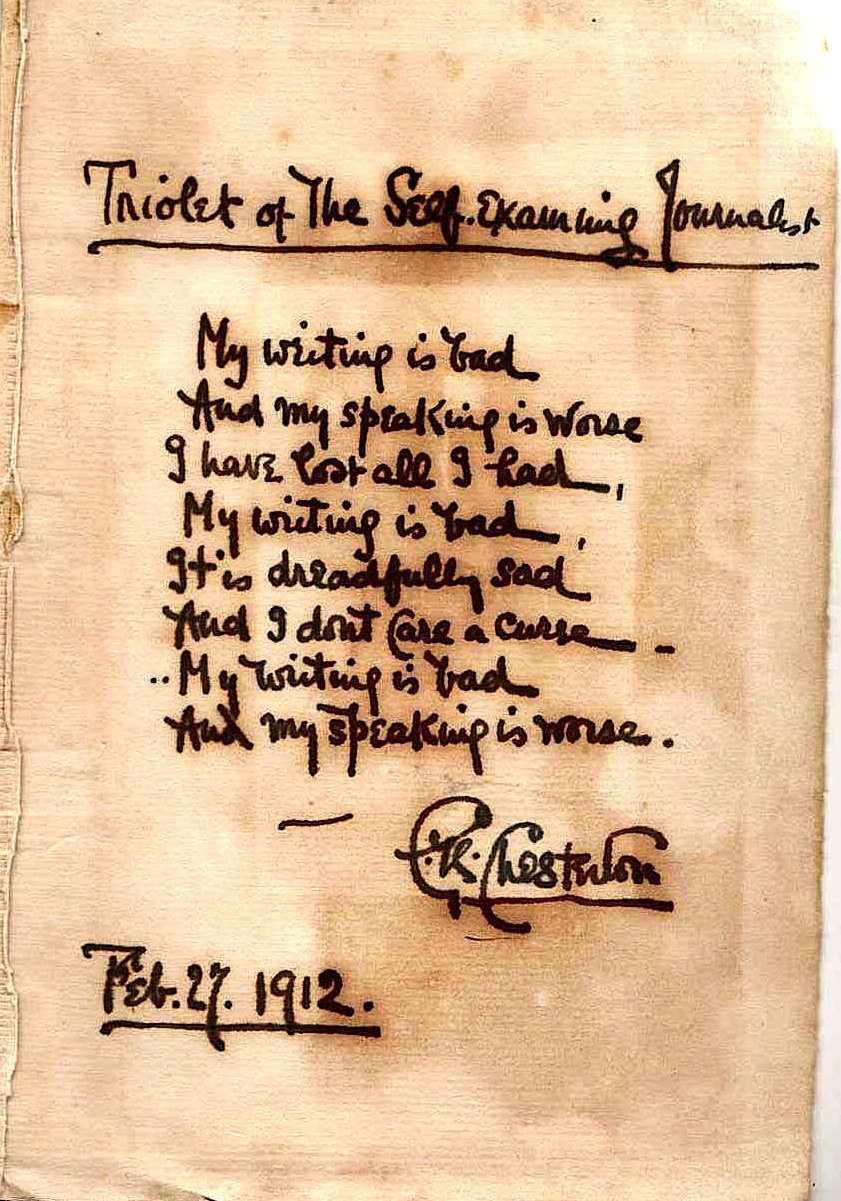 Triolet of The Self-Examining Journalist
My writing is bad
And my speaking is worse
I have lost all I had,
My writing is bad,
It is dreadfully sad
And I don't care a curse -
..My writing is bad
And my speaking is worse..
—
G.K. Chesterton
Feb. 27. 1912.